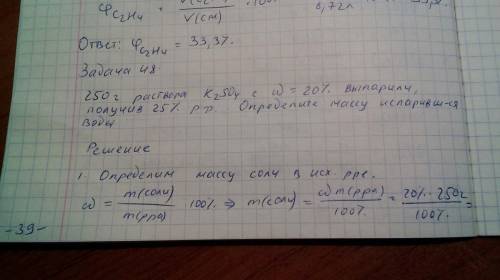 φC₂H₄ = V(C₂H₄) / V(см) · 100% 6,72л
Ответ: φC₂H₄ = 33,3%.
Задача 48
250г раствора K₂SO₄ с ω = 20% выпарили,
получив 25% р-р. Определите массу испаривш-ся
воды
Решение
1. Определим массу соли в исх. рре.
ω = m(соли) / m(рра) 100% ⇒ m(соли) = ω m(рра) / 100% = 20% · 250г / 100% =
-39-